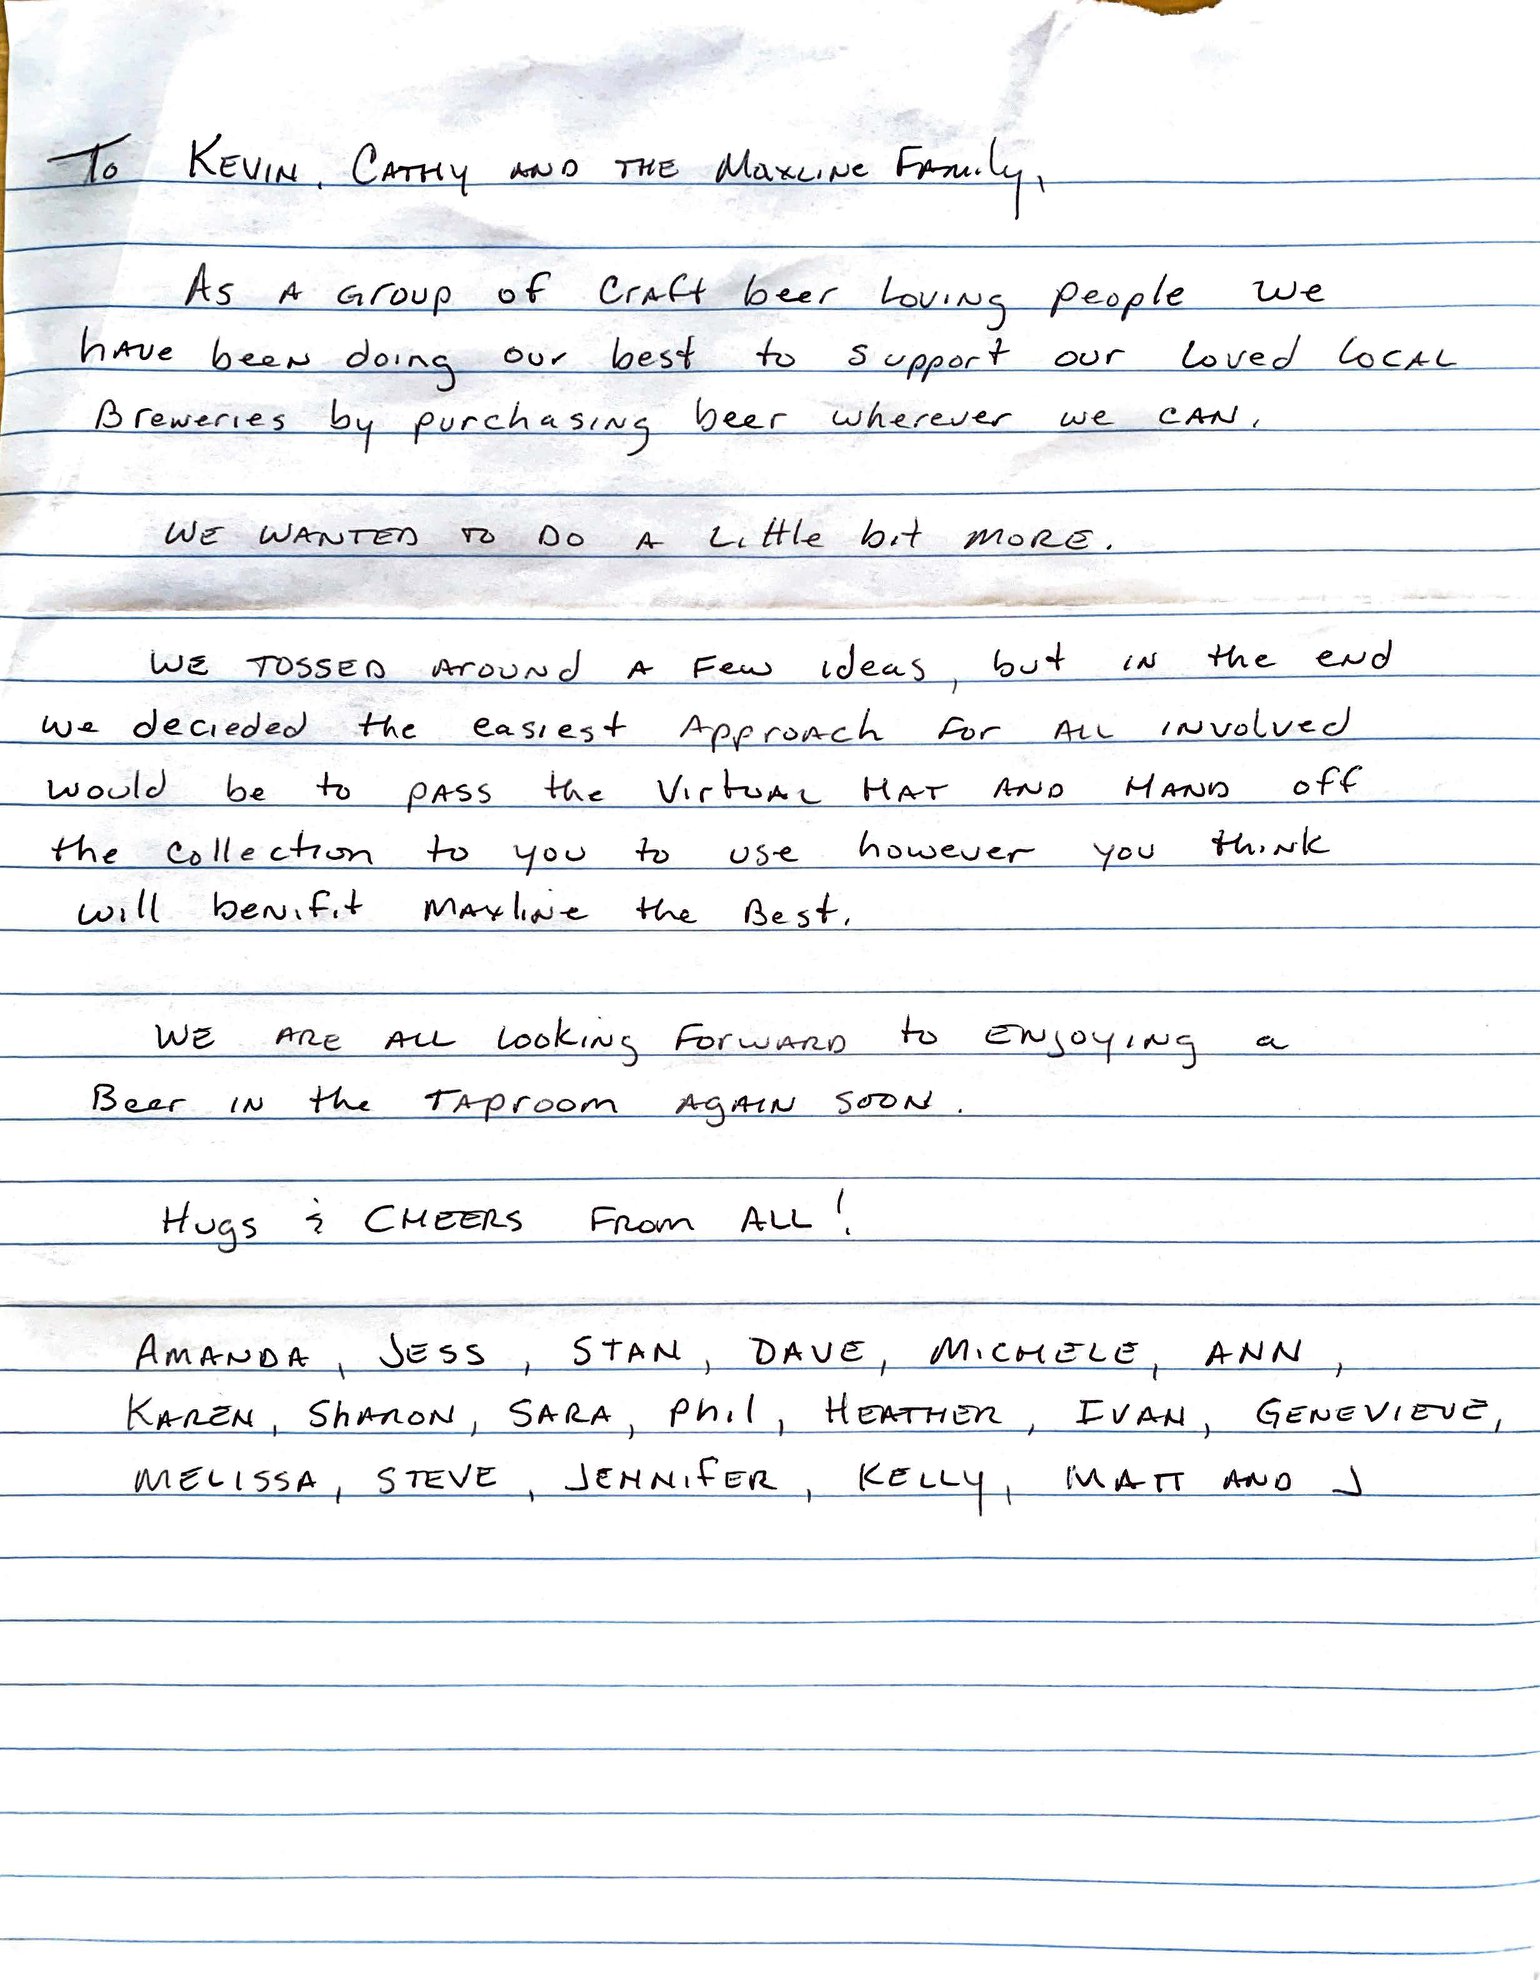 To Kevin, Cathy and the Maxline Family,
As a group of craft beer loving people we
have been doing our best to support our loved local
Breweries by purchasing beer wherever we can.
We wanted to do a little bit more.
We tossed around a few ideas, but in the end
we decieded the easiest approach for all involved
would be to pass the virtual hat and hand off
the collection to you to use however you think
will benifit Maxline the Best.
We are all looking forward to enjoying a
Beer in the Taproom again soon.
Hugs & Cheers from all!
Amanda, Jess, Stan, Dave, Michele, Ann,
Karen, Sharon, Sara, Phil, Heather, Ivan, Genevieve,
Melissa, Steve, Jennifer, Kelly, Matt and J